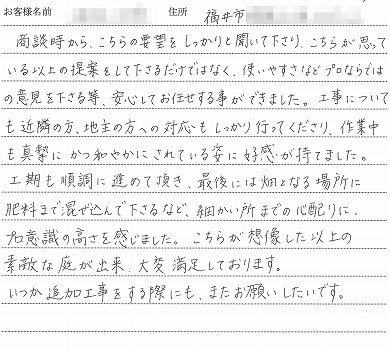 お客様名前 住所 福井市
商談時から、こちらの要望をしっかりと聞いて下さり、こちらが思って
いる以上の提案をして下さるだけではなく、使いやすさなどプロならでは
の意見を下さる等、安心してお任せする事ができました。工事について
も近隣の方、地主の方への対応もしっかり行ってくださり、作業中
も真摯にかつ和やかにされている姿に好感が持てました。
工期も順調に進めて頂き、最後には畑となる場所に
肥料まで混ぜ込んで下さるなど、細かい所までの心配りに、
プロ意識の高さを感じました。こちらが想像した以上の
素敵な庭が出来、大変満足しております。
いつか追加工事をする際にも、またお願いしたいです。